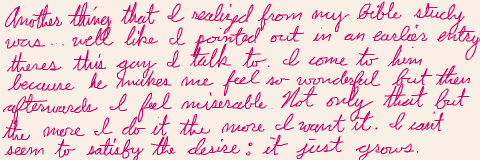 Another thing that I realized from my bible study
was... well like I pointed out in an earlier entry
theres this guy I talk to. I come to him
because he makes me feel so wonderful but then
afterwards I feel miserable. Not only that but
the more I do it the more I want it. I can't
seem to satisfy the desire; it just grows.